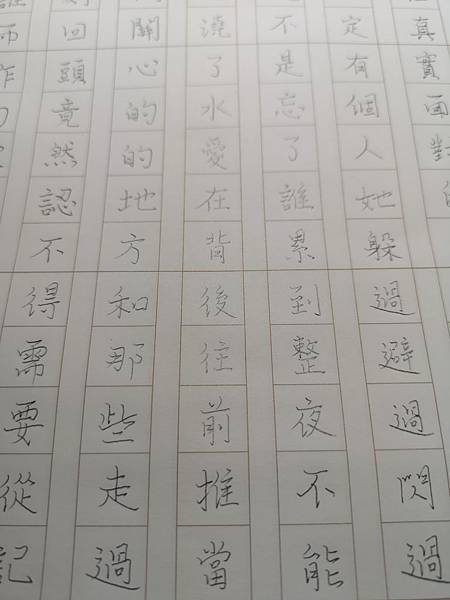 真實面對
定有個人她躲過避過閃過
不是忘了誰累到整夜不能
澆了水愛在背後往前推當
關心的的地方和那些走過
回頭竟然認不得需要從記
而昨